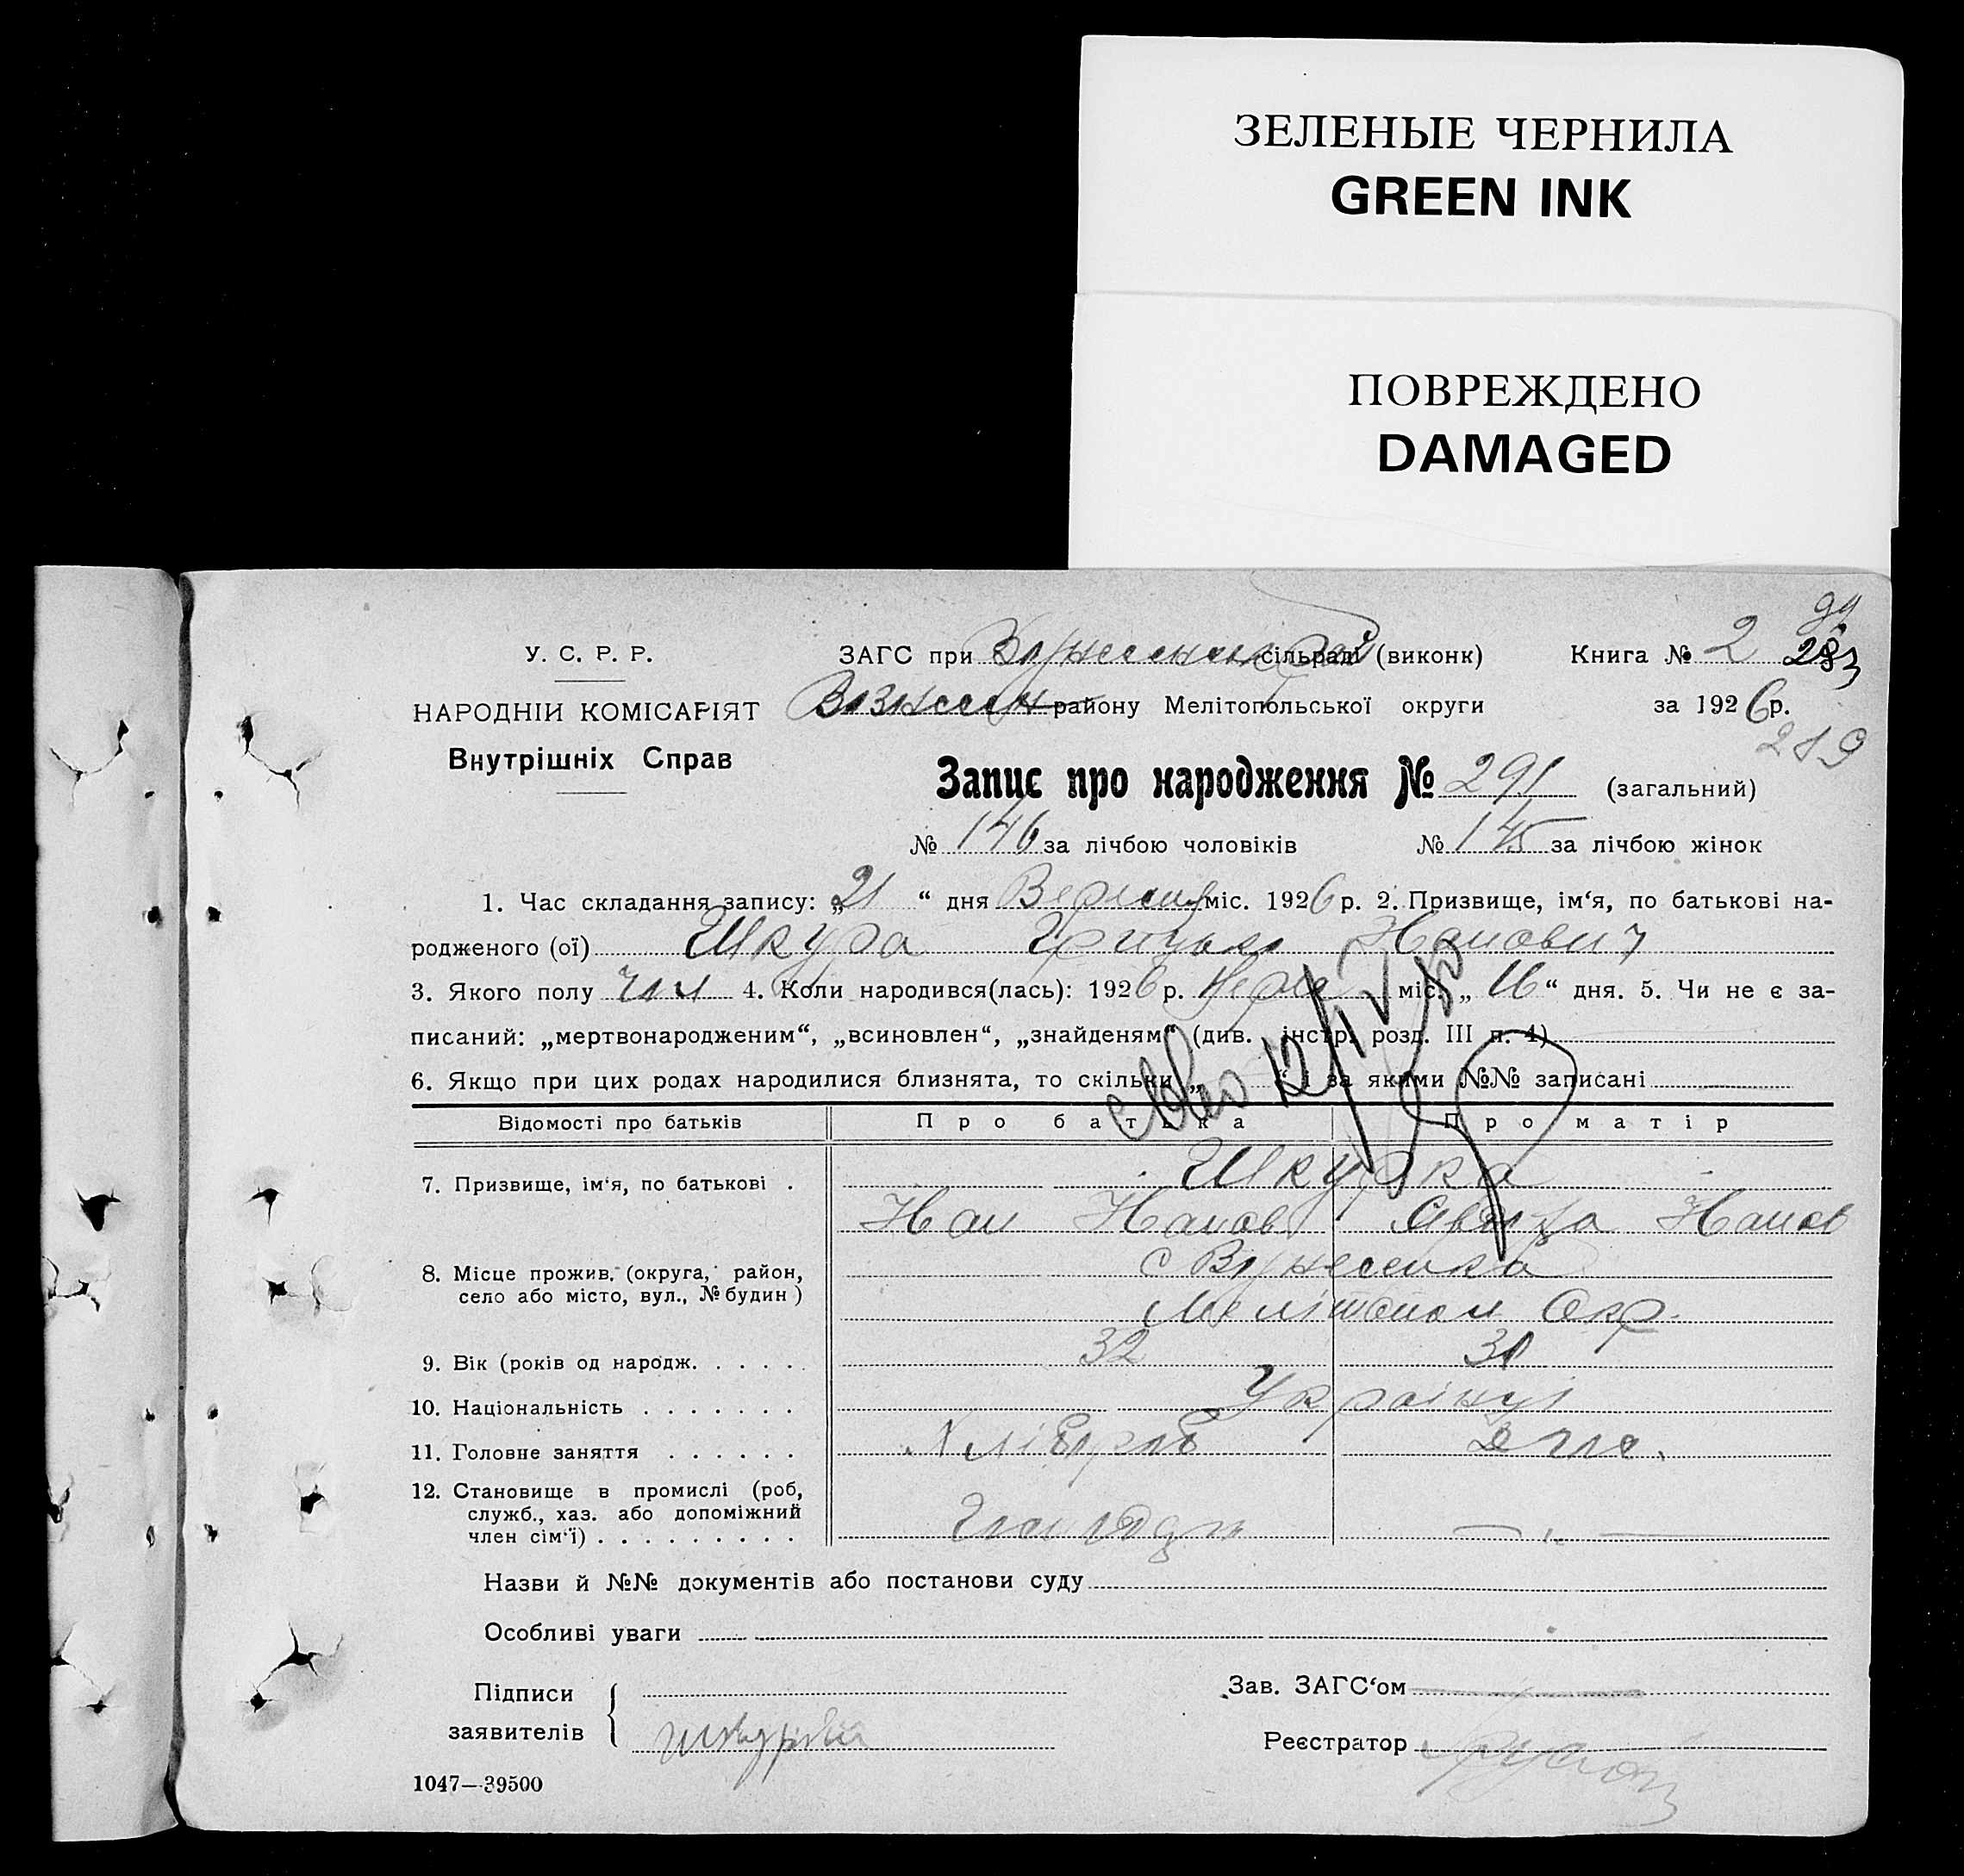 ЗЕЛЕНЫЕ ЧЕРНИЛА
GREEN INK
ПОВРЕЖДЕНО
DAMAGED
99
У. С. Р. Р. ЗАГС при сільраді (виконк) Книга № 2 283
НАРОДНІЙ КОМІСАРІЯТ Вознесен району Мелітопольської округи за 1926 р.
Внутрішніх Справ 219
Запис про народження № 291 (загальний)
№ 146 за лічбою чоловіків № 145 за лічбою жінок
1. Час складання запису: „21“ дня Вересня міс. 1926 р. 2. Призвище, ім‘я, по батькові на-
родженого (ої) Шкура Грицько Иванович
3. Якого полу чол 4. Коли народився(лась): 1926 р. міс. „16“ дня. 5. Чи не є за-
писаний: „мертвонародженим“, „всиновлен“, „знайденям“ (див. інстр. розд. III п. 4)
6. Якщо при цих родах народилися близнята, то скільки „ “ і за якими №№ записані
Відомості про батьків Про батька Про матір
7. Призвище, ім‘я, по батькові . Шкура
Иван Иванов Иванов
8. Місце прожив. (округа, район, с Вознесенка
село або місто, вул., № будин) Мелітопол Окр.
9. Вік (років од народж. . . . . . 32 31
10. Національність . . . . . . . Українці
11. Головне заняття . . . . . . Хлібороб
12. Становище в промислі (роб,
служб., хаз. або допоміжний
член сім‘ї) . . . . . . . . . — „ —
Назви й №№ документів або постанови суду
Особливі уваги
Підписи Зав. ЗАГС‘ом
заявителів Реєстратор
1047—39500